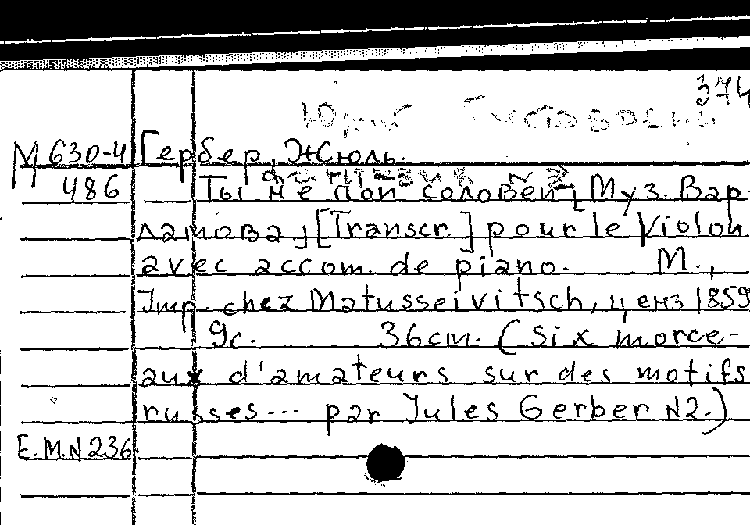 374
Юрий
М 630-4 Гербер, Жюль.
486 Ты не пой соловей, [Муз. Вар-
ламова] [Transcr.] pour le violon
avec accom. de piano. М.,
Imp. chez Matusseivitsch, ценз 1859
9с. 36см. (Six morce-
aux d'amateurs sur des motifs
russes... par Jules Gerber N2.)
E.M.N 236